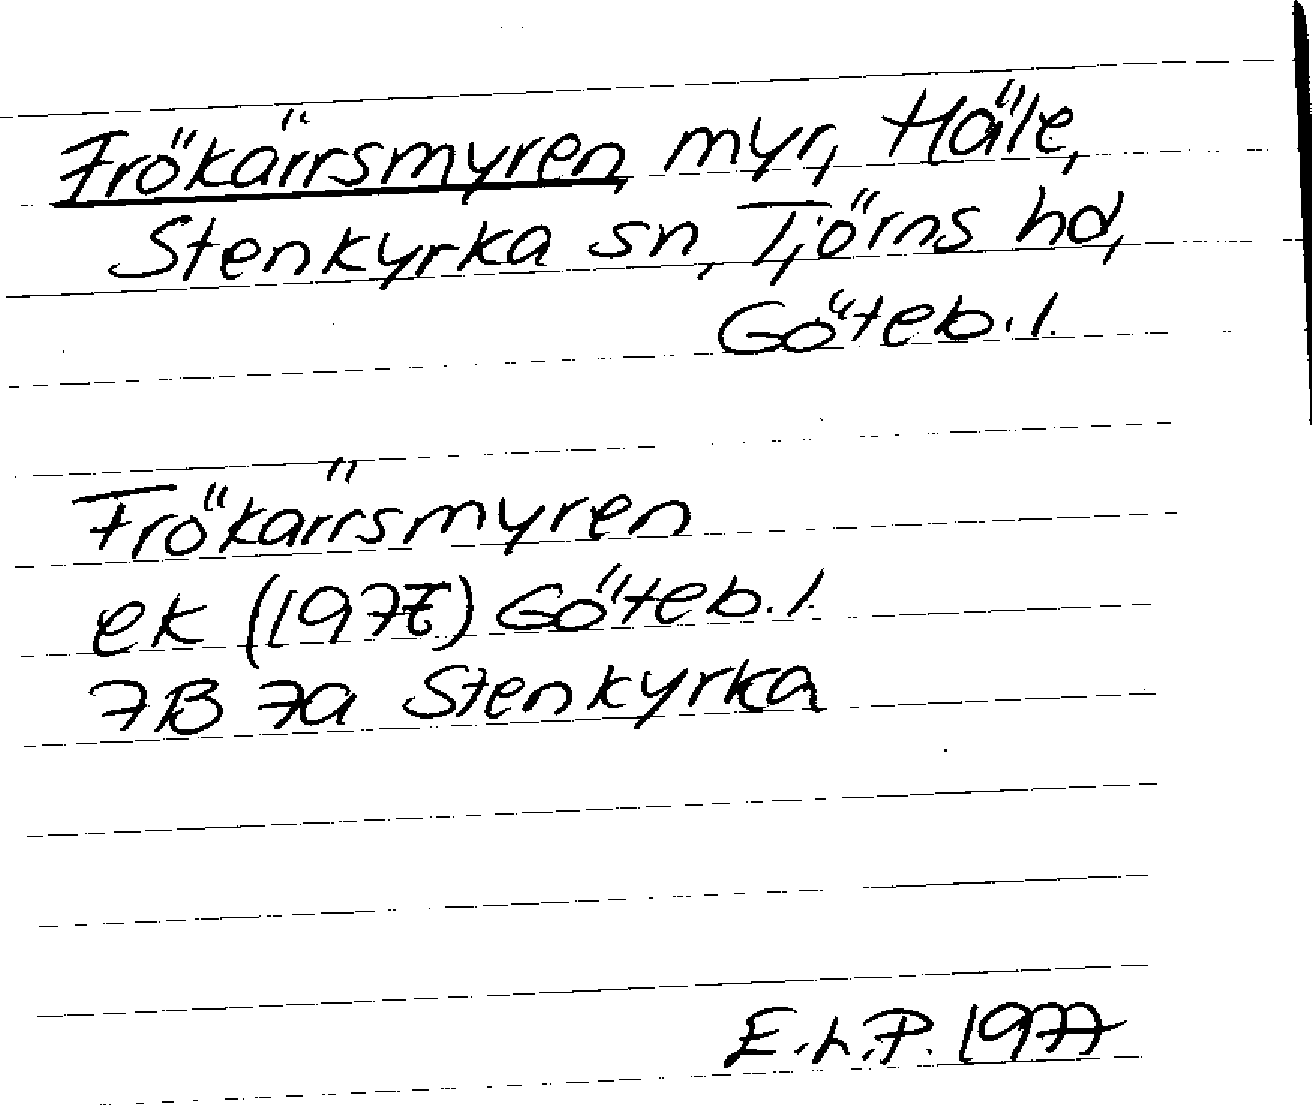 Frökärrsmyren, myr, Häle,
Stenkyrka sn, Tjörns hd,
Göteb. l.
Frökärrsmyren
ek (1977) Göteb. l.
7B 7a Stenkyrka
E.L.P. 1977